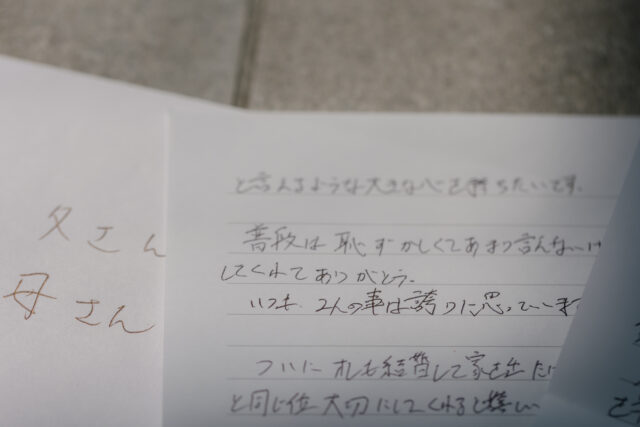 父さん
母さん
と言えるような大きな心を持ちたいです。
普段は恥ずかしくてあまり言えないけ
してくれてありがとう。
いつも、2人の事は誇りに思っています
ついにオレも結婚して家を出た
と同じ位大切にしてくれると嬉しい